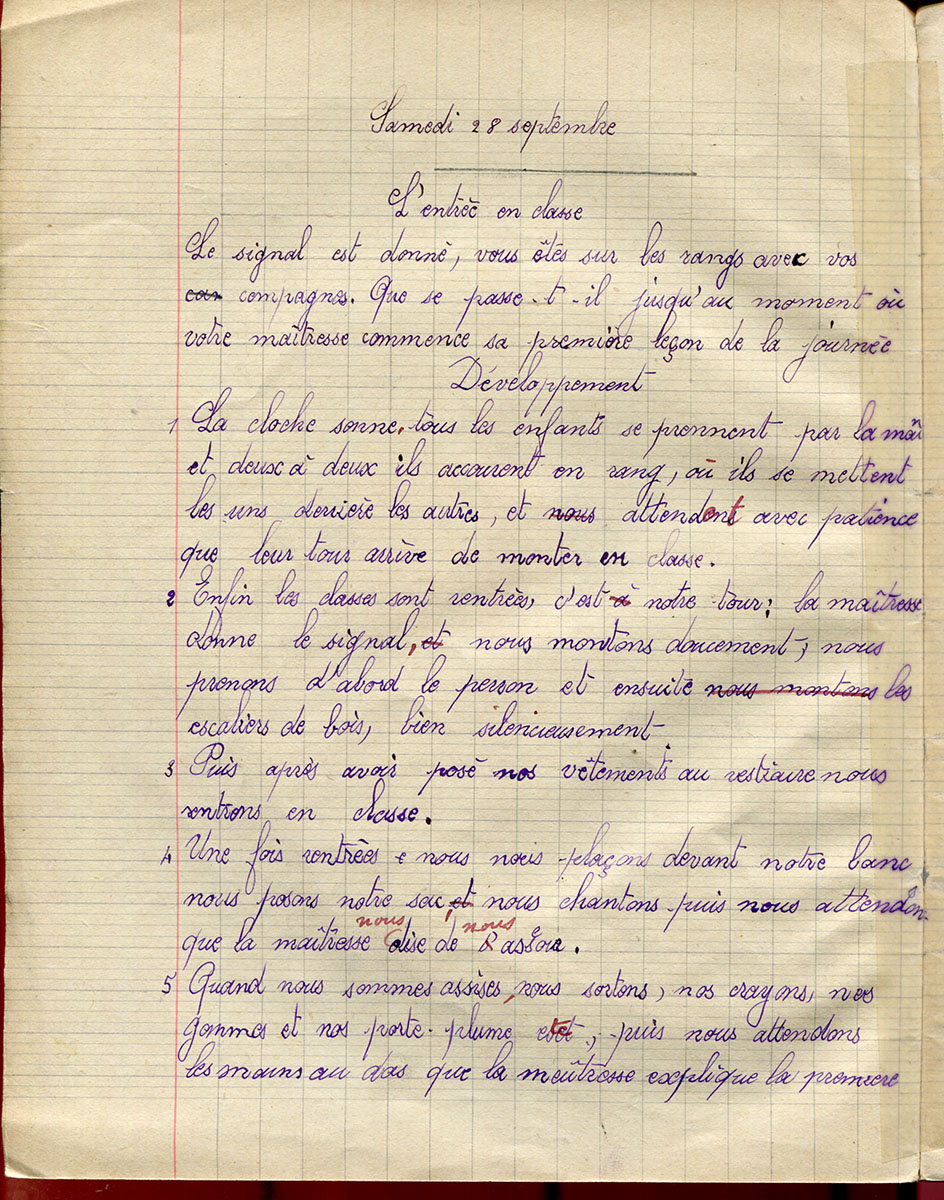 Samedi 28 septembre
L'entrée en classe
Le signal est donné, vous êtes sur les rangs avec vos
car compagnes. Que se passe-t-il jusqu'au moment où
votre maîtresse commence sa première leçon de la journée
Développement
1 La cloche sonne, tous les enfants se prennent par la main
et deux à deux ils accourent en rang, où ils se mettent
les uns derrière les autres, et nous attendent avec patience
que leur tour arrive de monter en classe.
2 Enfin les classes sont rentrées, c'est à notre tour; la maîtresse
donne le signal, et nous montons doucement; nous
prenons d'abord le person et ensuite nous montons les
escaliers de bois, bien silencieusement
3 Puis après avoir posé nos vêtements au vestiaire nous
rentrons en classe.
4 Une fois rentrées nous nous plaçons devant notre banc
nous posons notre sac, et nous chantons puis nous attendons
que la maîtresse nous dise de nous assoir.
5 Quand nous sommes assises, nous sortons, nos crayons, nos
gommes et nos porte-plume, puis nous attendons
les mains au dos que la maîtresse explique la première